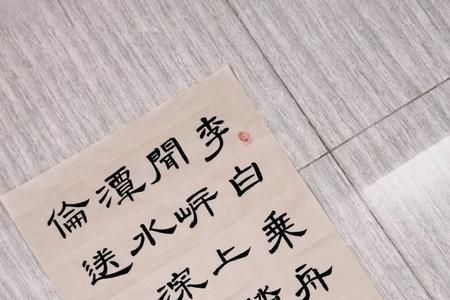 李白乘舟
聞岸上踏
潭水深
倫送